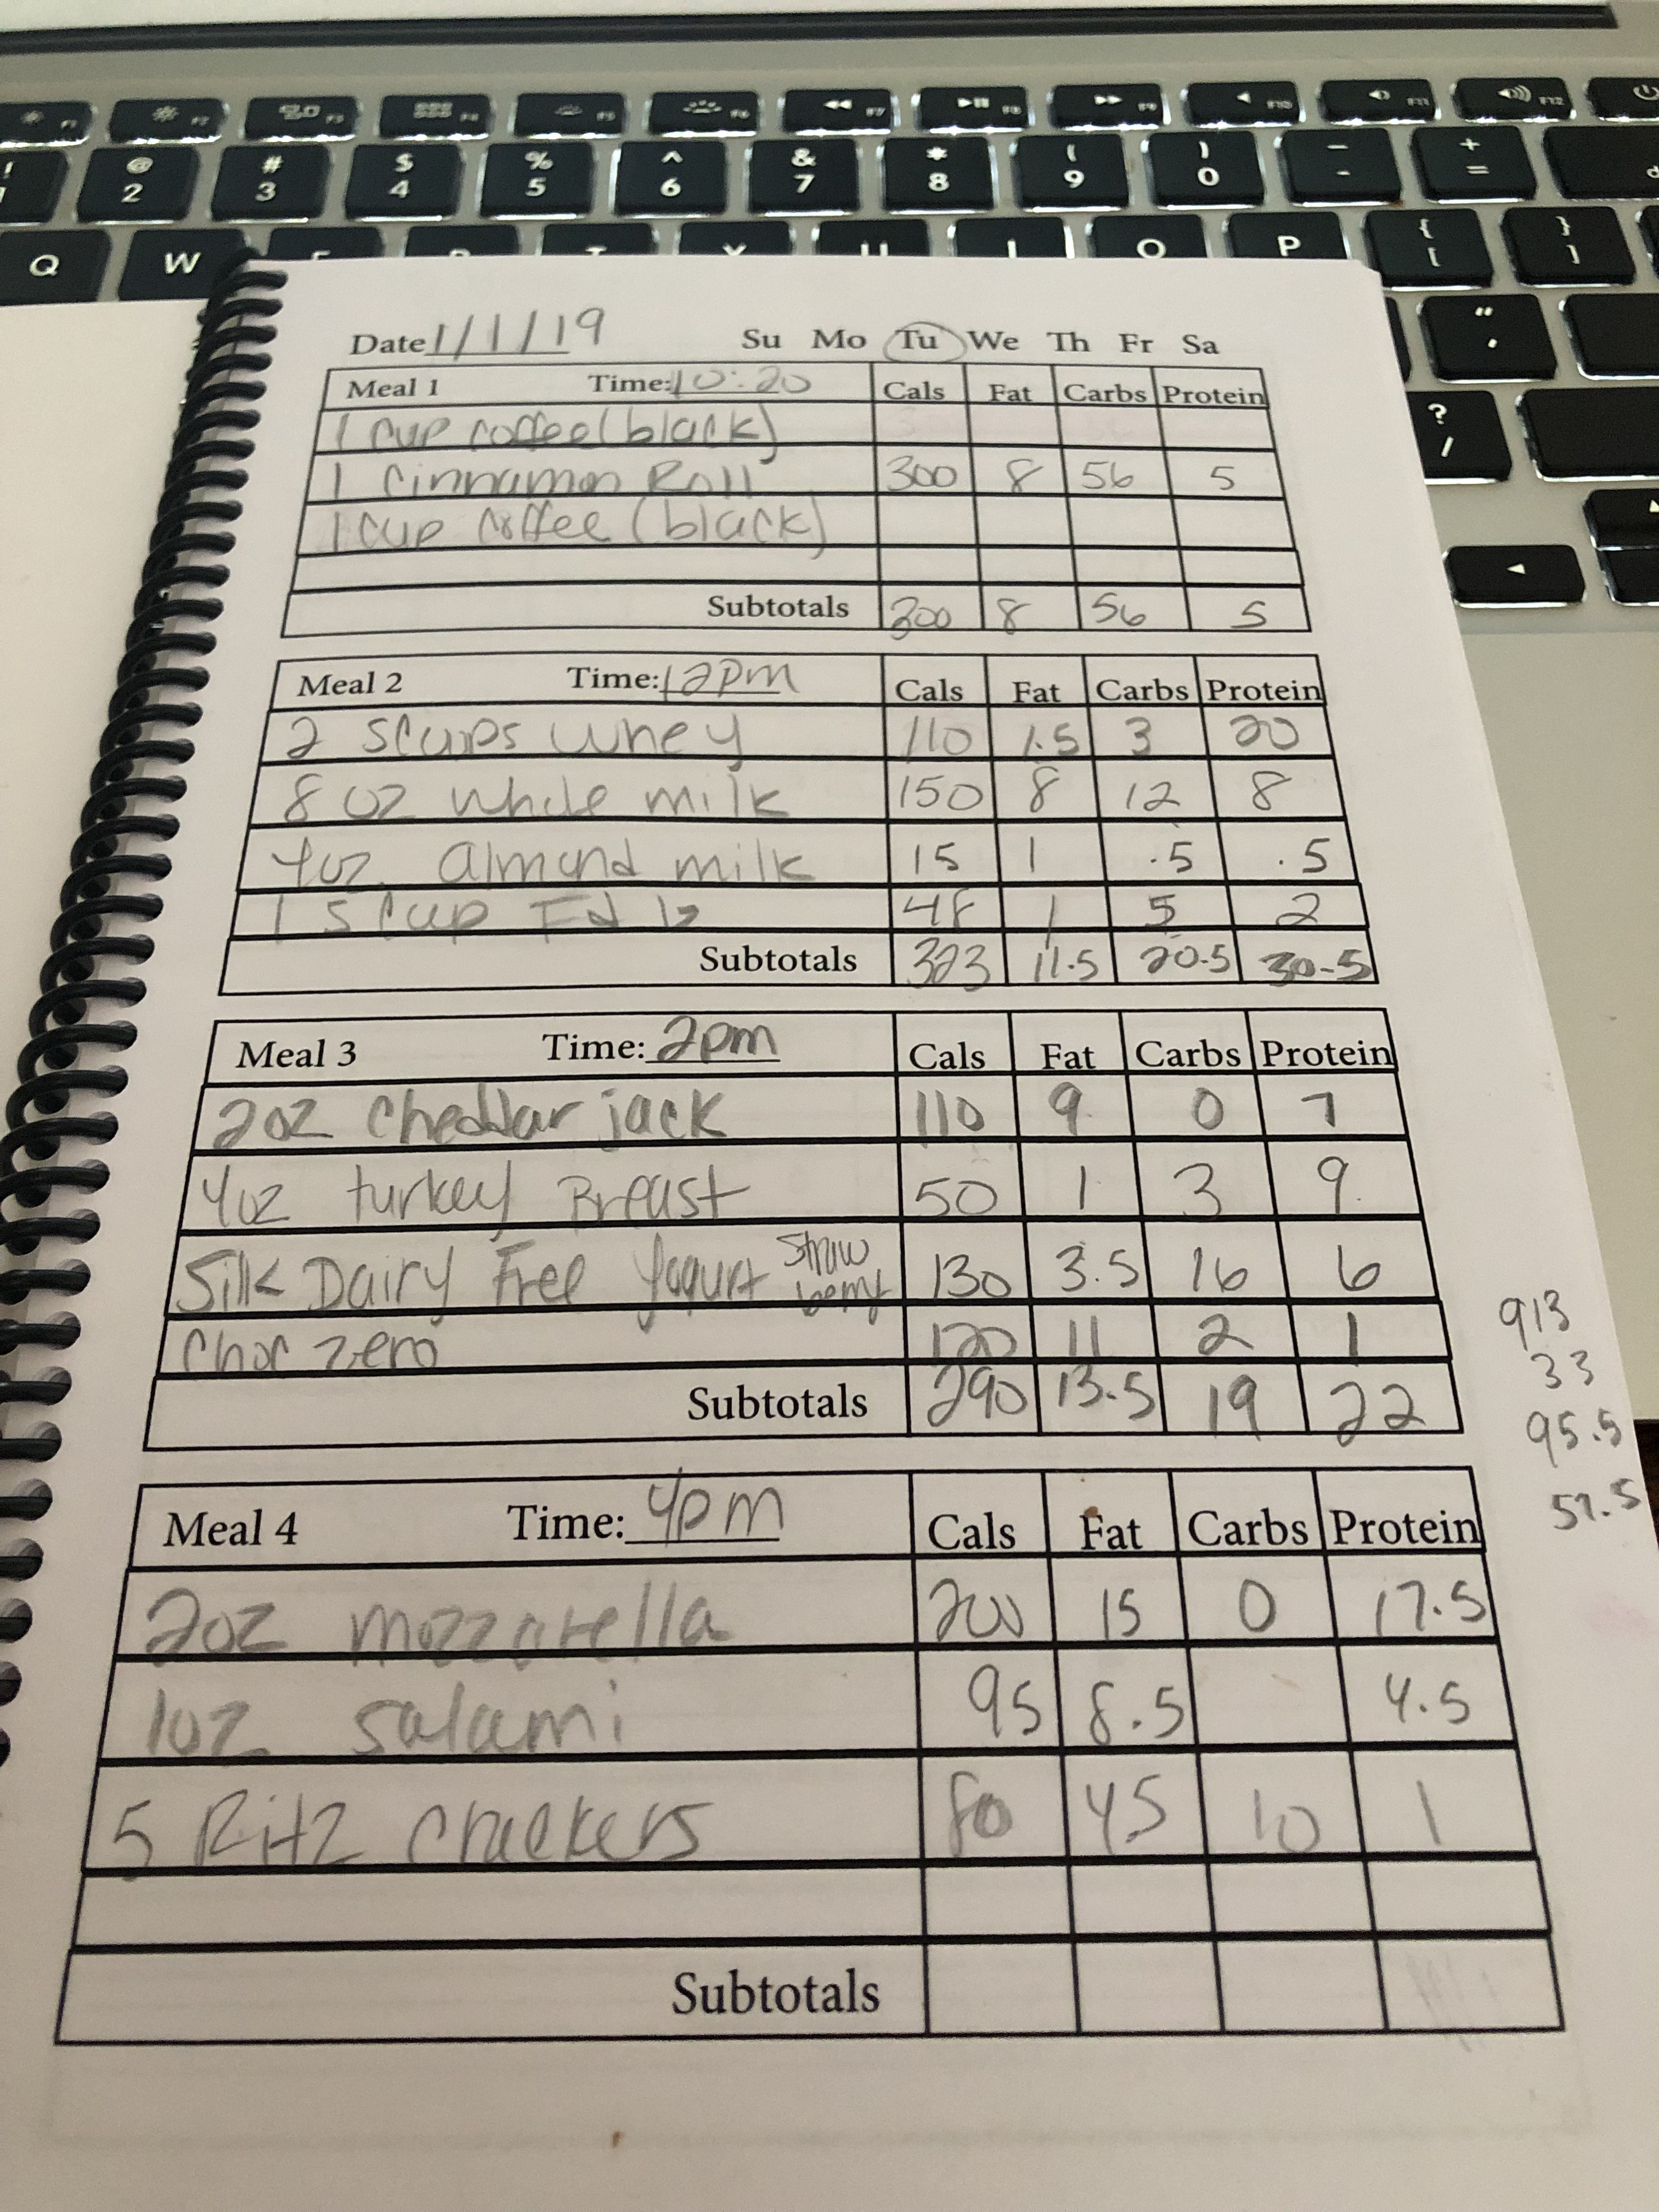 F1 F2 F3 F4 F5 F6 F7 F8 F9 F10 F11 F12
! @ 2 # 3 $ 4 % 5 ^ 6 & 7 * 8 ( 9 ) 0 _ - + =
Q W O P { [ } ]
" '
? /
Date 1/1/19 Su Mo Tu We Th Fr Sa
Meal 1 Time: 10:20 Cals Fat Carbs Protein
1 cup coffee (black)
1 Cinnamon Roll 300 8 56 5
1 cup coffee (black)
Subtotals 300 8 56 5
Meal 2 Time: 12pm Cals Fat Carbs Protein
2 scoops whey 110 1.5 3 20
8 oz whole milk 150 8 12 8
4oz almond milk 15 1 .5 .5
1 scoop 48 1 5 2
Subtotals 323 11.5 20.5 30.5
Meal 3 Time: 2pm Cals Fat Carbs Protein
2oz cheddar jack 110 9 0 7
4oz turkey Breast 50 1 3 9
Silk Dairy Free Yogurt Straw berry 130 3.5 16 6
Choc zero 120 11 2 1
Subtotals 290 13.5 19 22
913
33
95.5
57.5
Meal 4 Time: 4pm Cals Fat Carbs Protein
2oz mozzarella 200 15 0 17.5
1oz salami 95 8.5 4.5
5 Ritz crackers 80 4.5 10 1
Subtotals